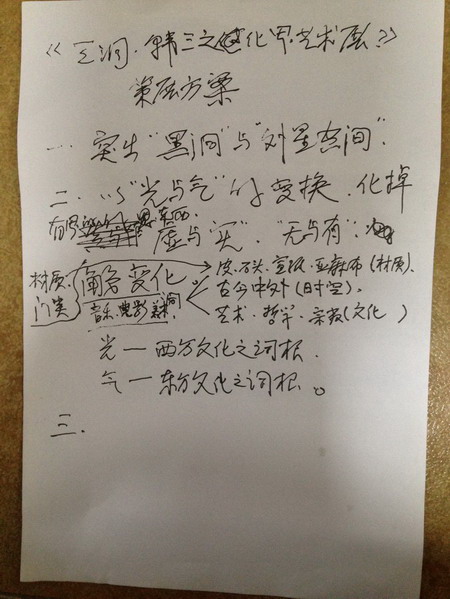 《三洞·韩三之化界艺术展》
策展方案
一. 突出“黑洞”与“外星空间”.
二. 以“光与气”的变换.化掉
有界 东西.
“虚与实”.“无与有”.
材质. 门类
阐咎变化
音乐.电影 空间
皮.石头.宣纸.亚麻布(材质).
古今中外(时空).
艺术.哲学.宗教(文化)
光—西方文化之词根.
气—东方文化之词根。
三.